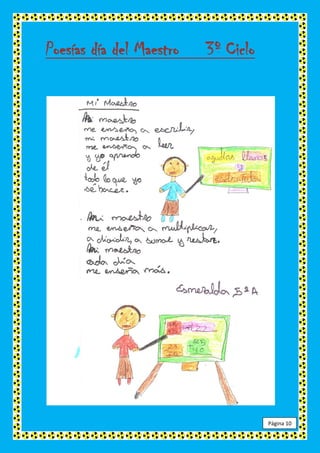 Poesías día del Maestro 3º Ciclo
Mi Maestro
Mi maestro
me enseña a escribir,
mi maestro
me enseña a leer
y yo aprendo
de él
todo lo que yo
sé hacer.
Mi maestro
me enseña a multiplicar,
a dividir, a sumar y restar.
Mi maestro
cada día
me enseña más.
Esmeralda 5º A
Página 10